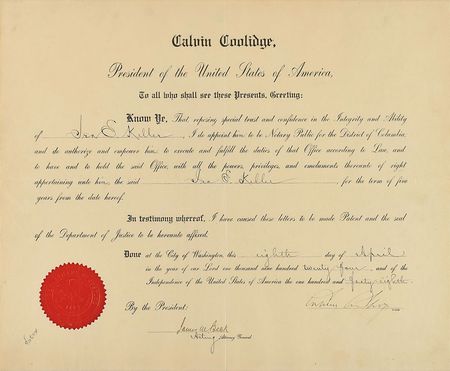 Calvin Coolidge,
President of the United States of America,
To all who shall see these Presents, Greeting:
Know Ye, That reposing special trust and confidence in the Integrity and Ability
of Ira E Keller, I do appoint him to be Notary Public for the District of Columbia,
and do authorize and empower him to execute and fulfill the duties of that Office according to Law, and
to have and to hold the said Office, with all the powers, privileges, and emoluments thereunto of right
appertaining unto him, the said Ira E Keller, for the term of five
years from the date hereof.
In testimony whereof, I have caused these letters to be made Patent and the seal
of the Department of Justice to be hereunto affixed.
Done at the City of Washington, this eighth day of April
in the year of our Lord one thousand nine hundred twenty four, and of the
Independence of the United States of America the one hundred and forty-eighth.
By the President:
Acting Attorney General